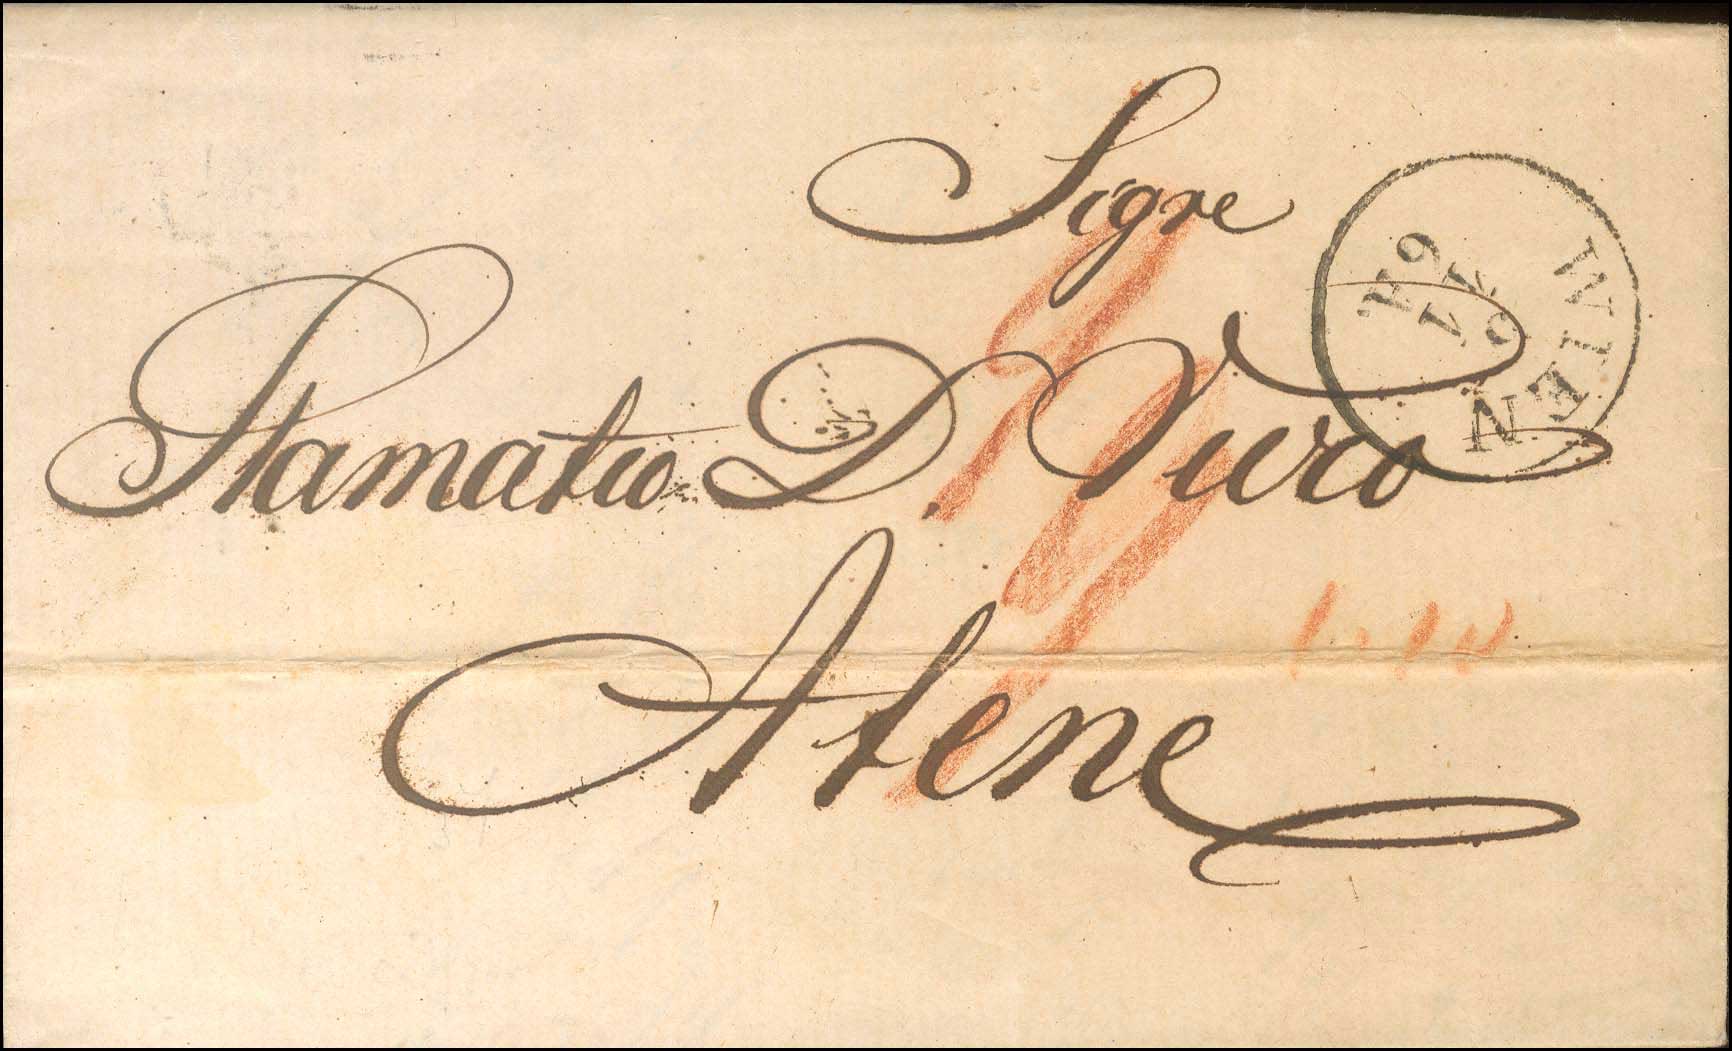 Sigre
Stamatio D. Vuro
Atene
WIEN